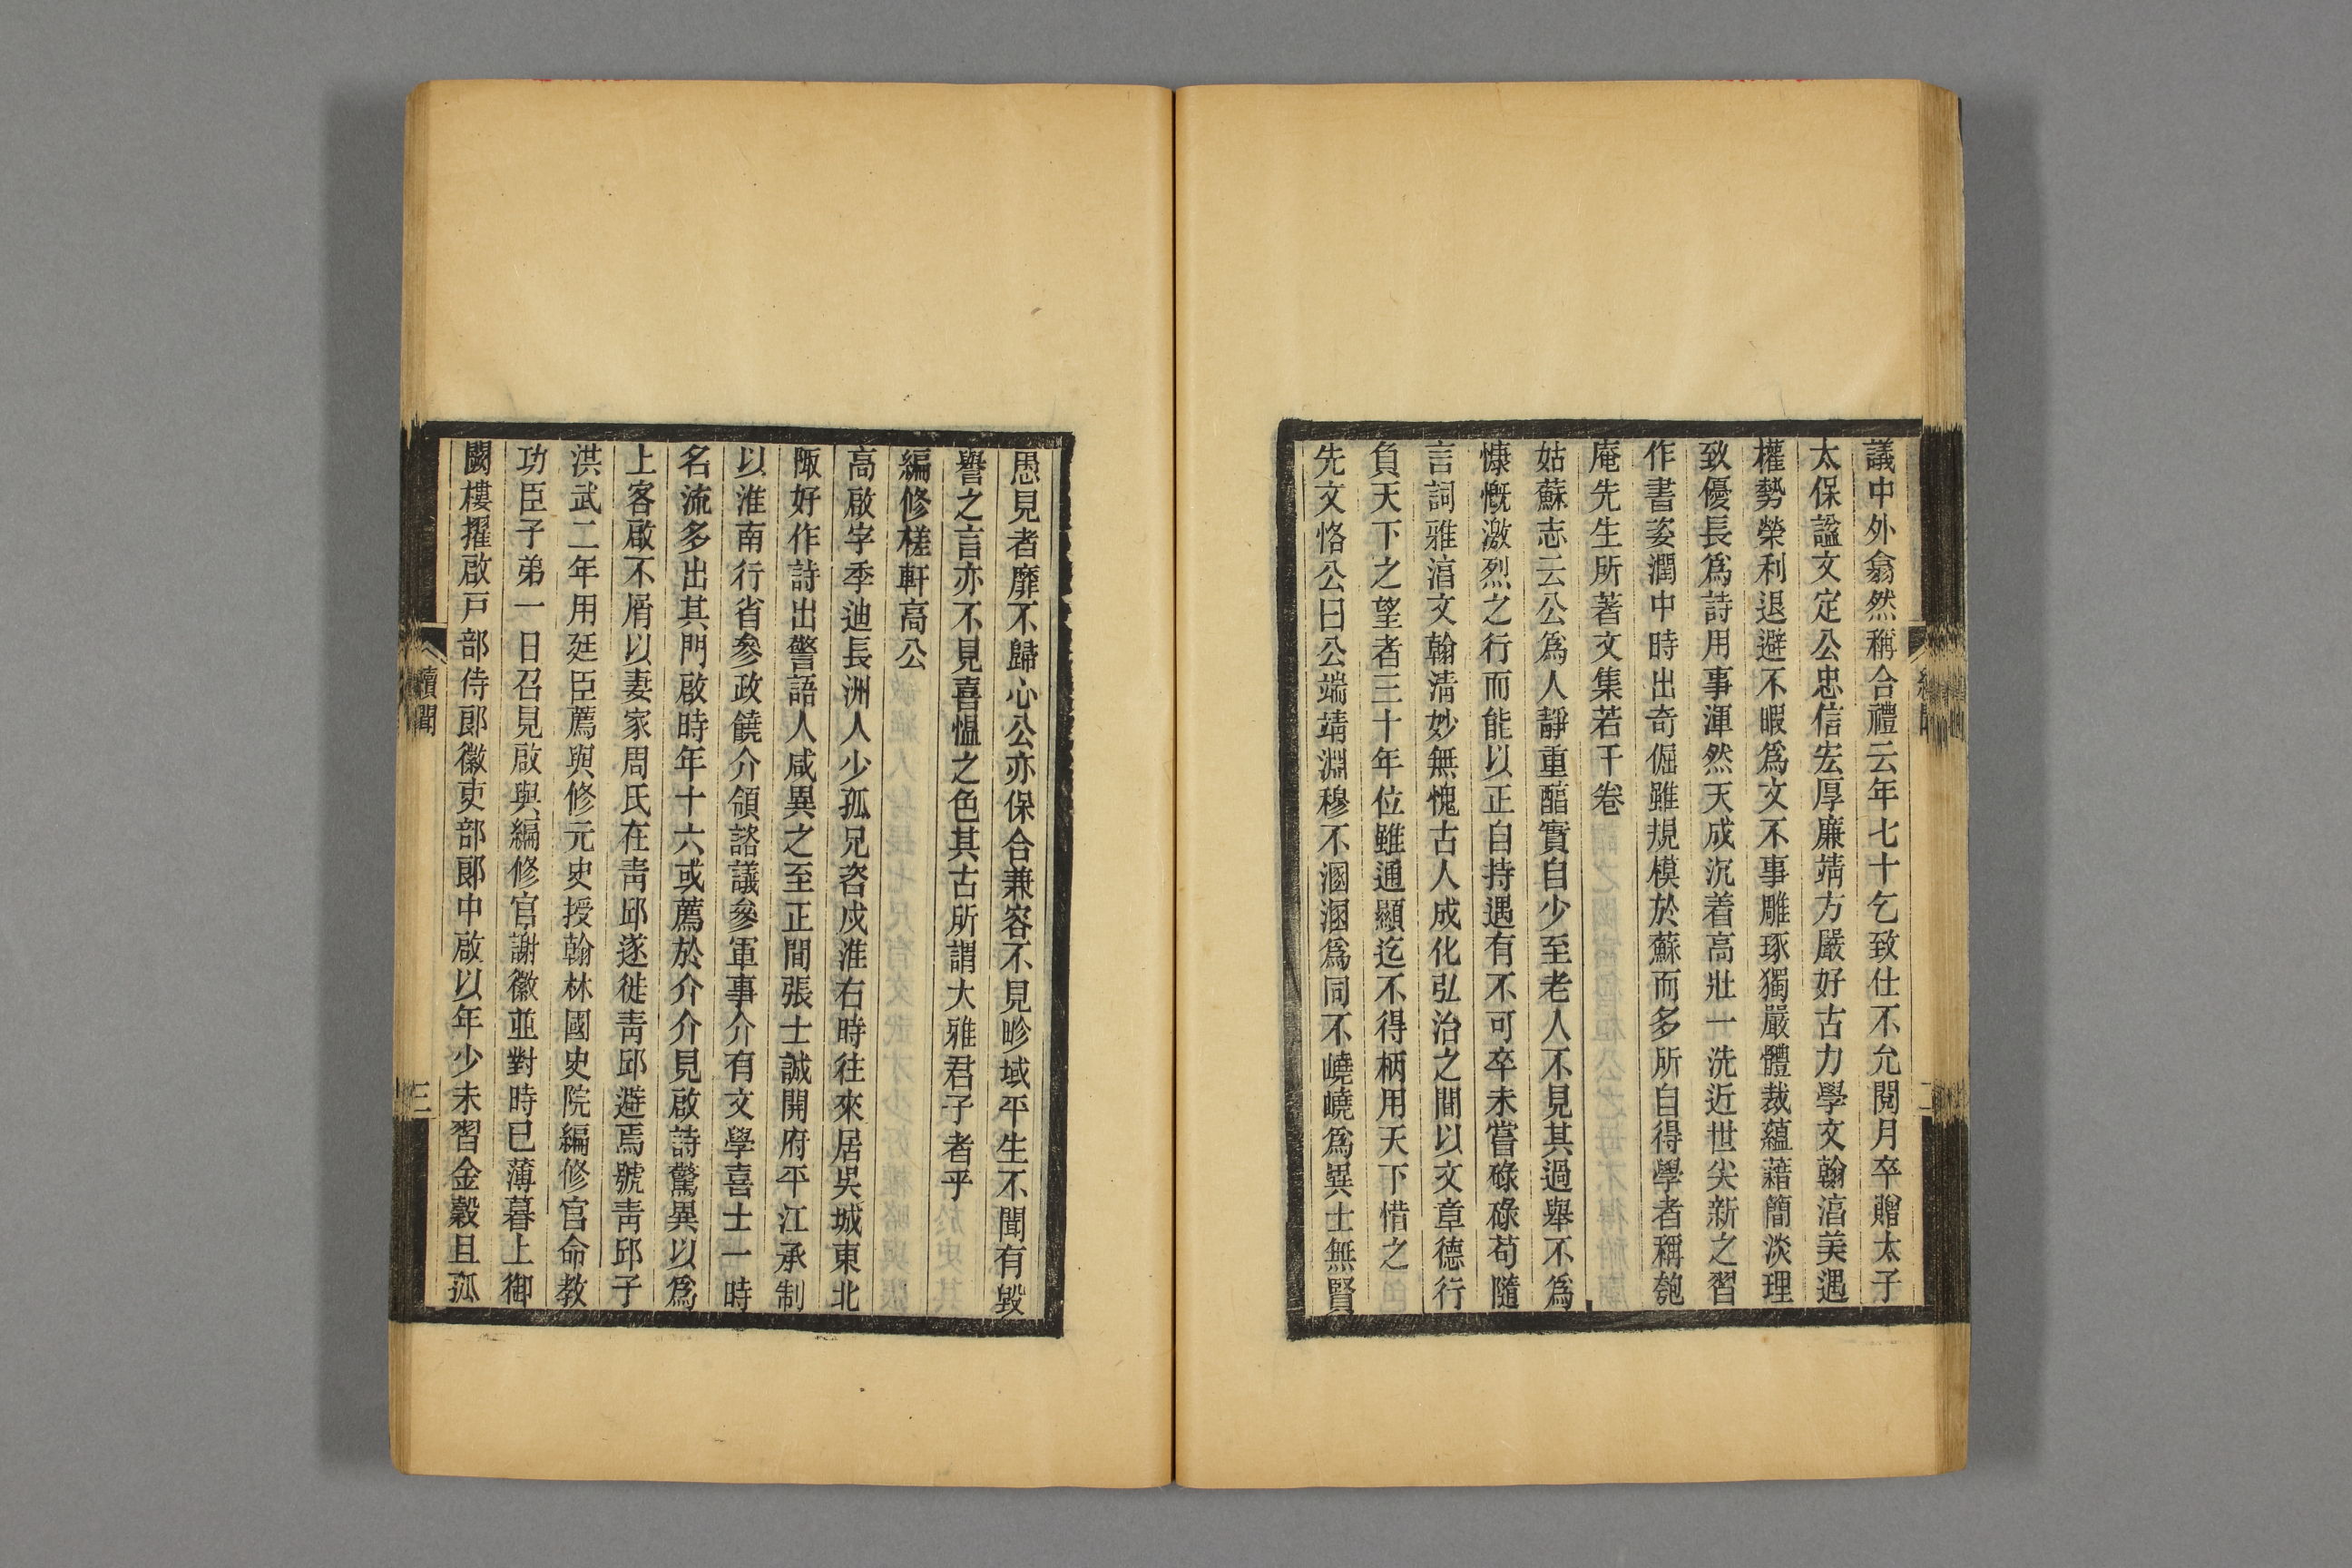 議中外翕然稱合禮云年七十乞致仕不允閱月卒贈太子
太保謚文定公忠信宏厚廉靖方嚴好古力學文翰湻美遇
權勢榮利退避不暇爲文不事雕琢獨嚴體裁蘊藉簡淡理
致優長爲詩用事渾然天成沉着高壯一洗近世尖新之習
作書姿潤中時出奇倔雖規模於蘇而多所自得學者稱匏
庵先生所著文集若干卷
姑蘇志云公爲人靜重醞實自少至老人不見其過舉不爲
慷慨激烈之行而能以正自持遇有不可卒未嘗碌碌苟隨
言詞雅湻文翰淸妙無愧古人成化弘治之間以文章德行
負天下之望者三十年位雖通顯迄不得柄用天下惜之
先文恪公曰公端靖淵穆不溷溷爲同不嶢嶢爲異士無賢
愚見者靡不歸心公亦保合兼容不見畛域平生不聞有毀
譽之言亦不見喜慍之色其古所謂大雅君子者乎
編修槎軒高公
高啟字季迪長洲人少孤兄咨戍淮右時往來居吳城東北
陬好作詩出警語人咸異之至正間張士誠開府平江承制
以淮南行省參政饒介領諮議參軍事介有文學喜士一時
名流多出其門啟時年十六或薦於介介見啟詩驚異以爲
上客啟不屑以妻家周氏在靑邱遂徙靑邱避焉號靑邱子
洪武二年用廷臣薦與修元史授翰林國史院編修官命教
功臣子弟一日召見啟與編修官謝徽並對時已薄暮上御
闕樓擢啟戸部侍郎徽吏部郎中啟以年少未習金穀且孤
續聞
三